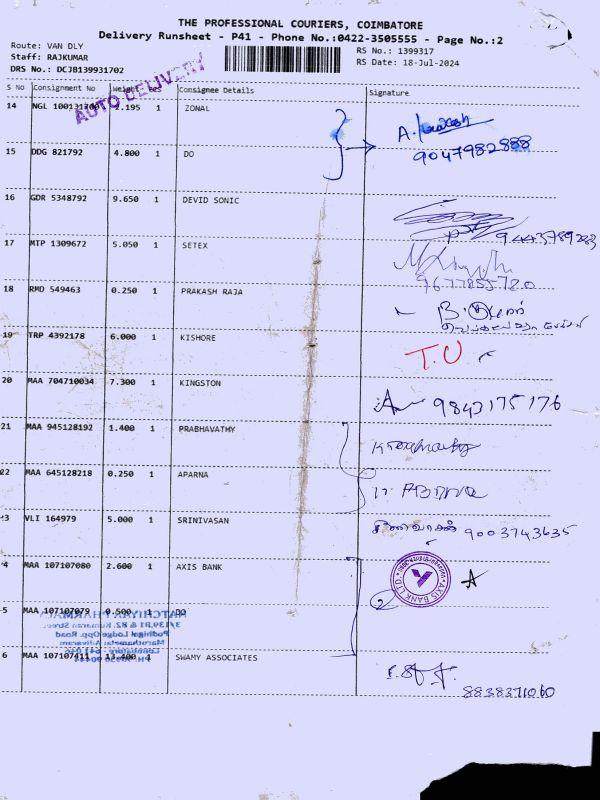 THE PROFESSIONAL COURIERS, COIMBATORE
Delivery Runsheet - P41 - Phone No.:0422-3505555 - Page No.:2
Route: VAN DLY
RS No.: 1399317
Staff: RAJKUMAR
RS Date: 18-Jul-2024
DRS No.: DCJB139931702
AUTO DELIVERY
S No Consignment No Weight Pcs Consignee Details Signature
14 NGL 100131700 2.195 1 ZONAL
15 DDG 821792 4.800 1 DO 9047982888
16 GDR 5348792 9.650 1 DEVID SONIC
17 MTP 1309672 5.050 1 SETEX 9443789283
18 RMD 549463 0.250 1 PRAKASH RAJA
19 TRP 4392178 6.000 1 KISHORE T.U
20 MAA 704710034 7.300 1 KINGSTON 9843175176
21 MAA 945128192 1.400 1 PRABHAVATHY
22 MAA 645128218 0.250 1 APARNA
3 VLI 164979 5.000 1 SRINIVASAN சீனிவாசன் 9003743635
4 MAA 107107080 2.600 1 AXIS BANK AXIS BANK LTD.
5 MAA 107107079 0.500 1 DO
6 MAA 107107411 13.400 1 SWAMY ASSOCIATES 8838371060